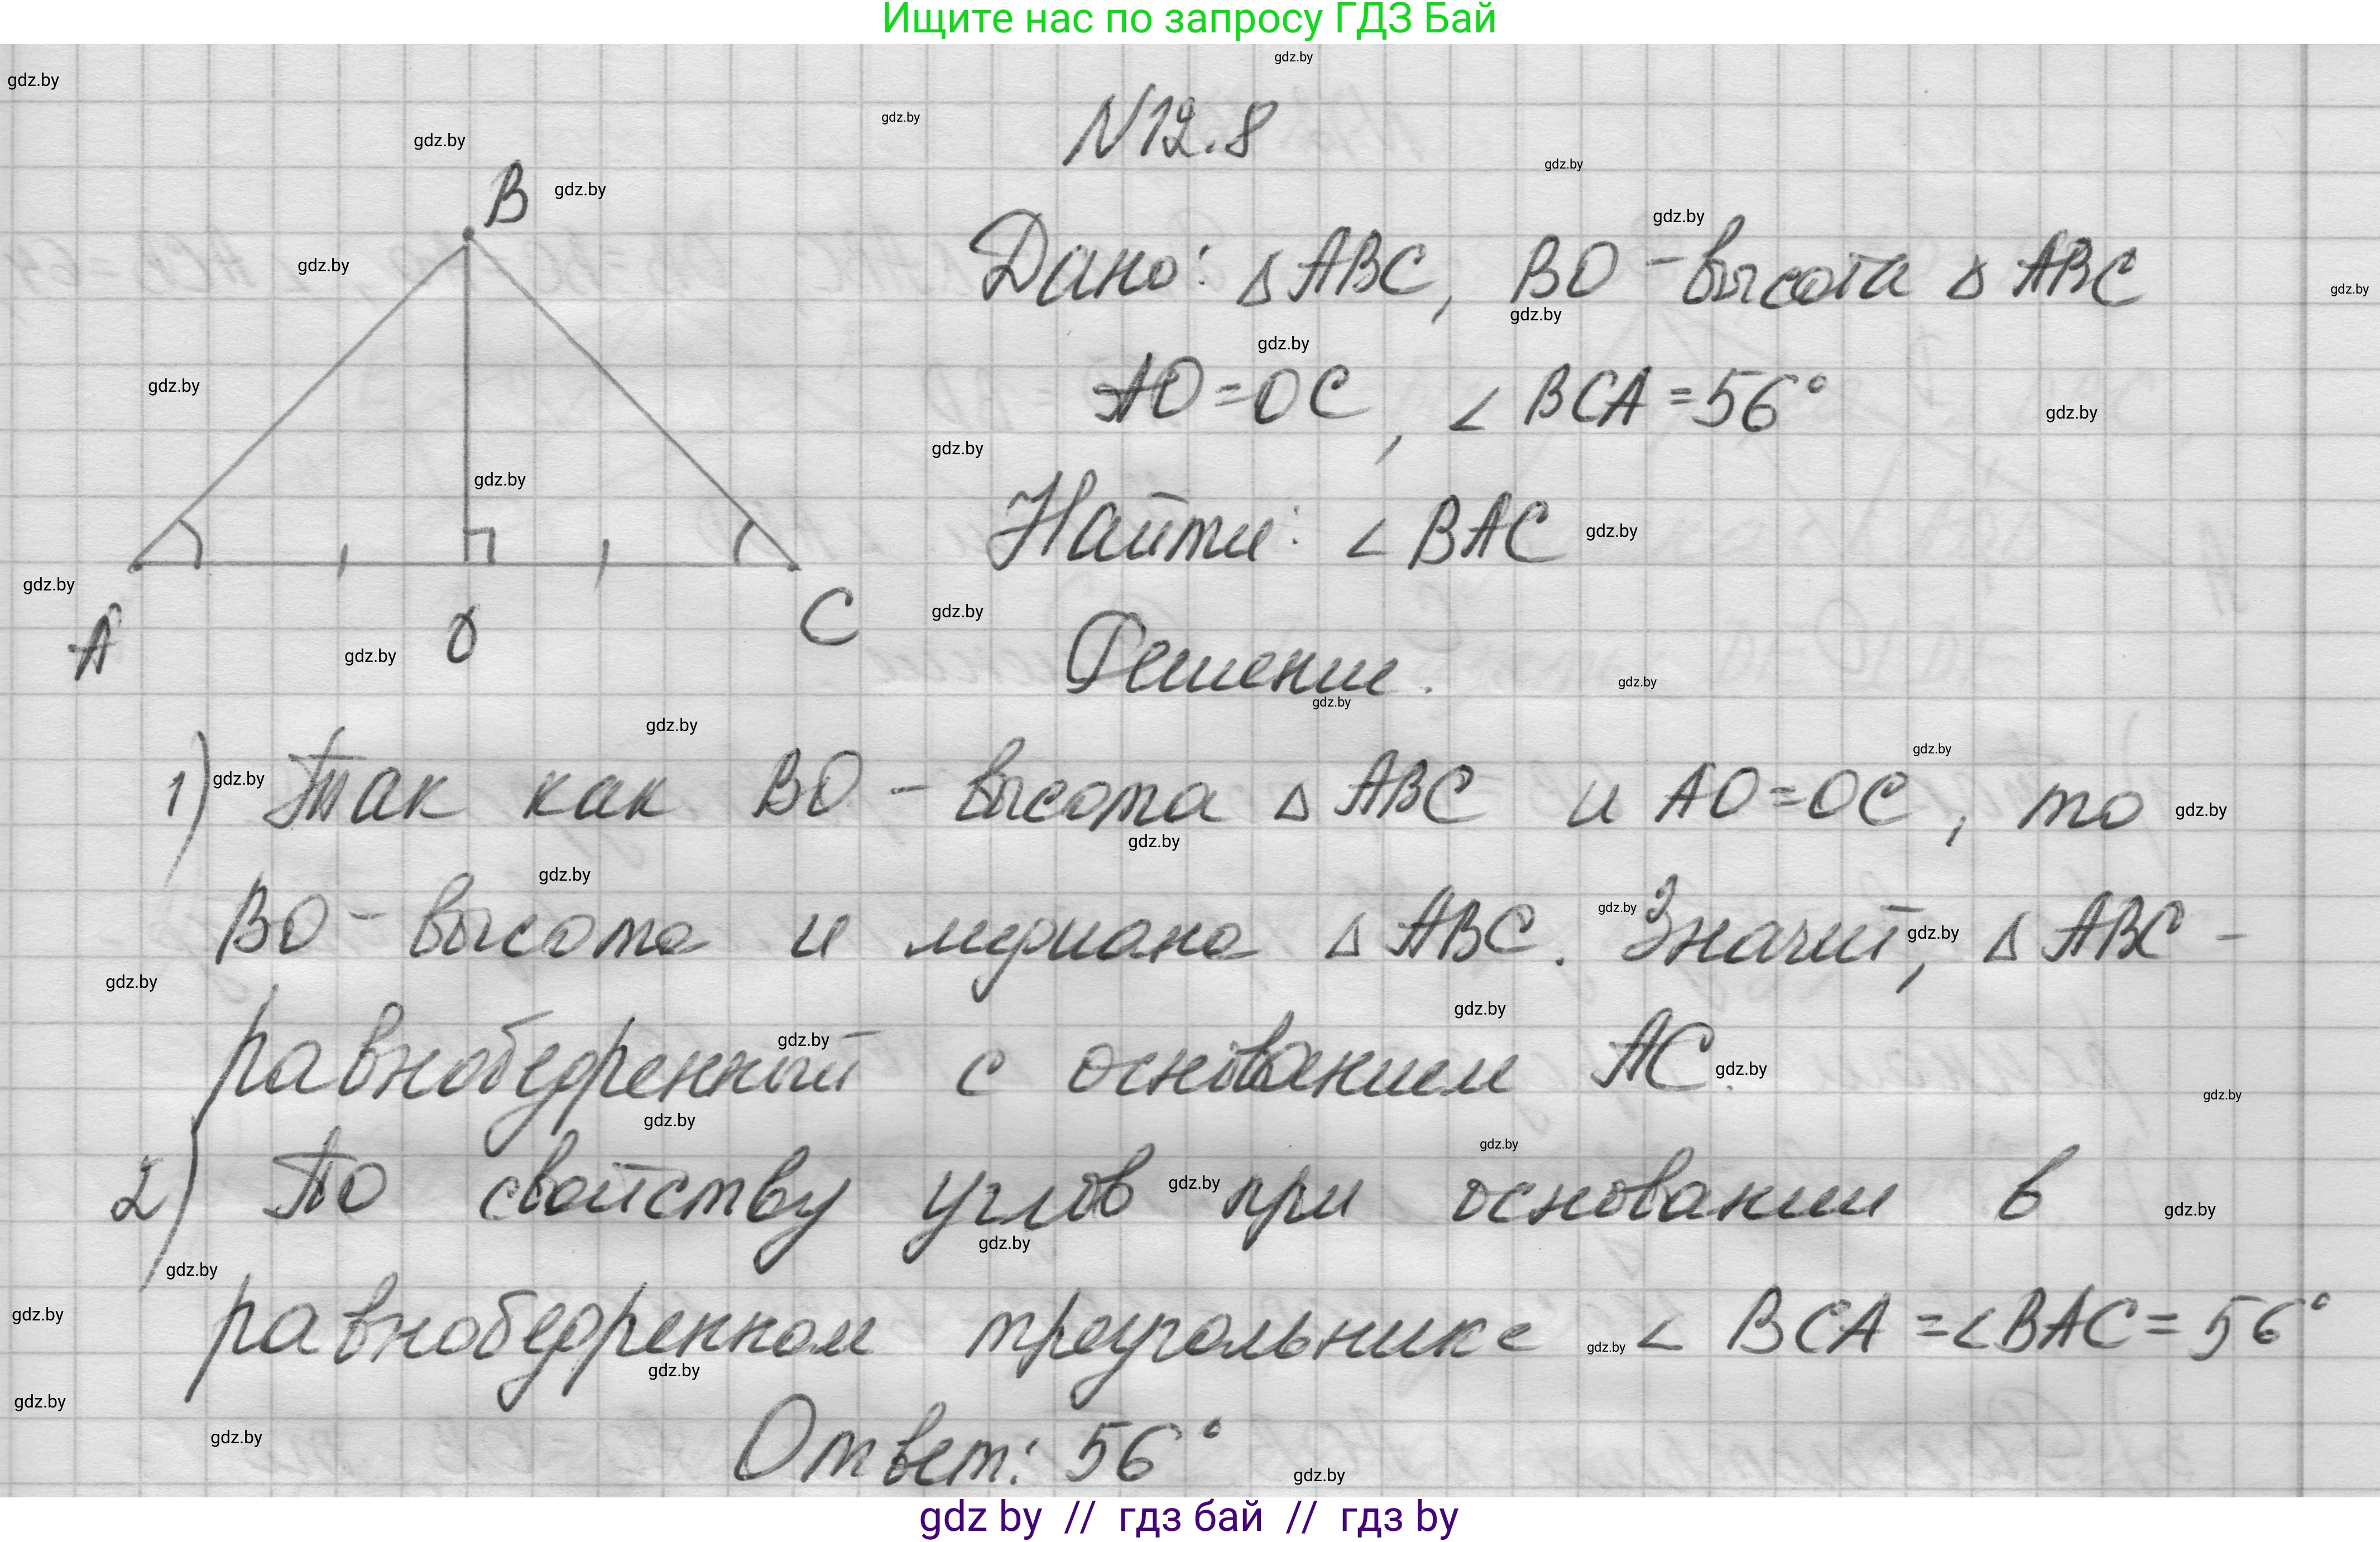 Ищите нас по запросу ГДЗ Бай
N12.8
Дано: △ABC, BO - высота △ABC
AO=OC, ∠BCA=56°
Найти: ∠BAC
Решение.
B
A O C
1) Так как BO - высота △ABC и AO=OC, то
BO - высота и медиана △ABC. Значит, △ABC -
равнобедренный с основанием AC.
2) По свойству углов при основании в
равнобедренном треугольнике ∠BCA=∠BAC=56°
Ответ: 56°
gdz by // гдз бай // гдз by
gdz.by